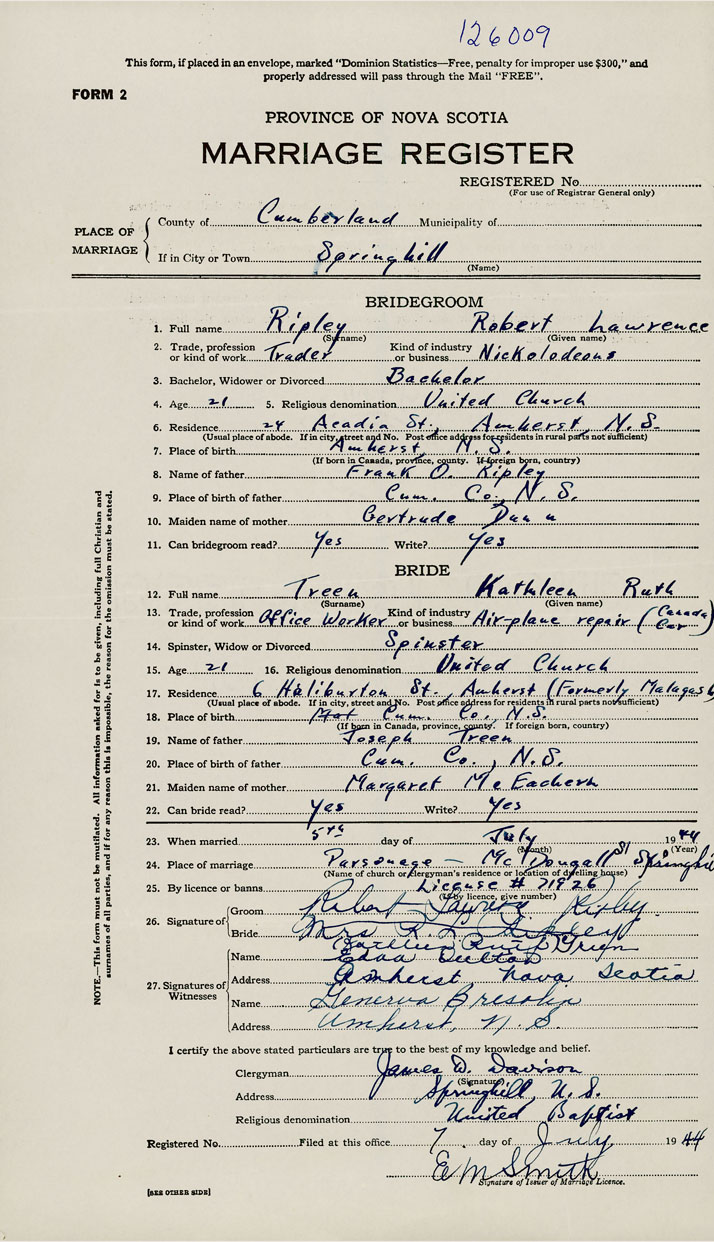 126009
This form, if placed in an envelope, marked "Dominion Statistics—Free, penalty for improper use $300," and
properly addressed will pass through the Mail "FREE".
FORM 2
PROVINCE OF NOVA SCOTIA
MARRIAGE REGISTER
REGISTERED No.
(For use of Registrar General only)
PLACE OF MARRIAGE
County of Cumberland Municipality of
If in City or Town Springhill
(Name)
BRIDEGROOM
1. Full name Ripley Robert Lawrence
(Surname) (Given name)
2. Trade, profession or kind of work Trader Kind of industry or business Nickolodeons
3. Bachelor, Widower or Divorced Bachelor
4. Age 21 5. Religious denomination United Church
6. Residence 24 Acadia St., Amherst, N.S.
(Usual place of abode. If in city, street and No. Post office address for residents in rural parts not sufficient)
7. Place of birth Amherst, N.S.
(If born in Canada, province, county. If foreign born, country)
8. Name of father Frank O. Ripley
9. Place of birth of father Cum. Co., N.S.
10. Maiden name of mother Gertrude Dunn
11. Can bridegroom read? Yes Write? Yes
BRIDE
12. Full name Treen Kathleen Ruth
(Surname) (Given name)
13. Trade, profession or kind of work Office Worker Kind of industry or business Air-plane repair (Canada Car)
14. Spinster, Widow or Divorced Spinster
15. Age 21 16. Religious denomination United Church
17. Residence 6 Haliburton St., Amherst (Formerly Malagash
(Usual place of abode. If in city, street and No. Post office address for residents in rural parts not sufficient)
18. Place of birth Cum. Co., N.S.
(If born in Canada, province, county. If foreign born, country)
19. Name of father Joseph Treen
20. Place of birth of father Cum. Co., N.S.
21. Maiden name of mother Margaret McEachern
22. Can bride read? Yes Write? Yes
23. When married 5th day of July 1944
(Month) (Year)
24. Place of marriage Parsonage — McDougall St Springhill
(Name of church or clergyman's residence or location of dwelling house)
25. By licence or banns License # 71926
(If by licence, give number)
26. Signature of
Groom Robert Lawrence Ripley
Bride Mrs R. L. Ripley
Kathleen Ruth Treen
27. Signatures of Witnesses
Name Edna
Address Amherst Nova Scotia
Name Generva
Address Amherst, N.S.
I certify the above stated particulars are true to the best of my knowledge and belief.
Clergyman James D. Davison
(Signature)
Address Springhill, N.S.
Religious denomination United Baptist
Registered No. Filed at this office 7 day of July 1944
E M Smith
Signature of Issuer of Marriage Licence.
[SEE OTHER SIDE]
NOTE.—This form must not be mutilated. All information asked for is to be given, including full Christian and
surnames of all parties, and if for any reason this is impossible, the reason for the omission must be stated.